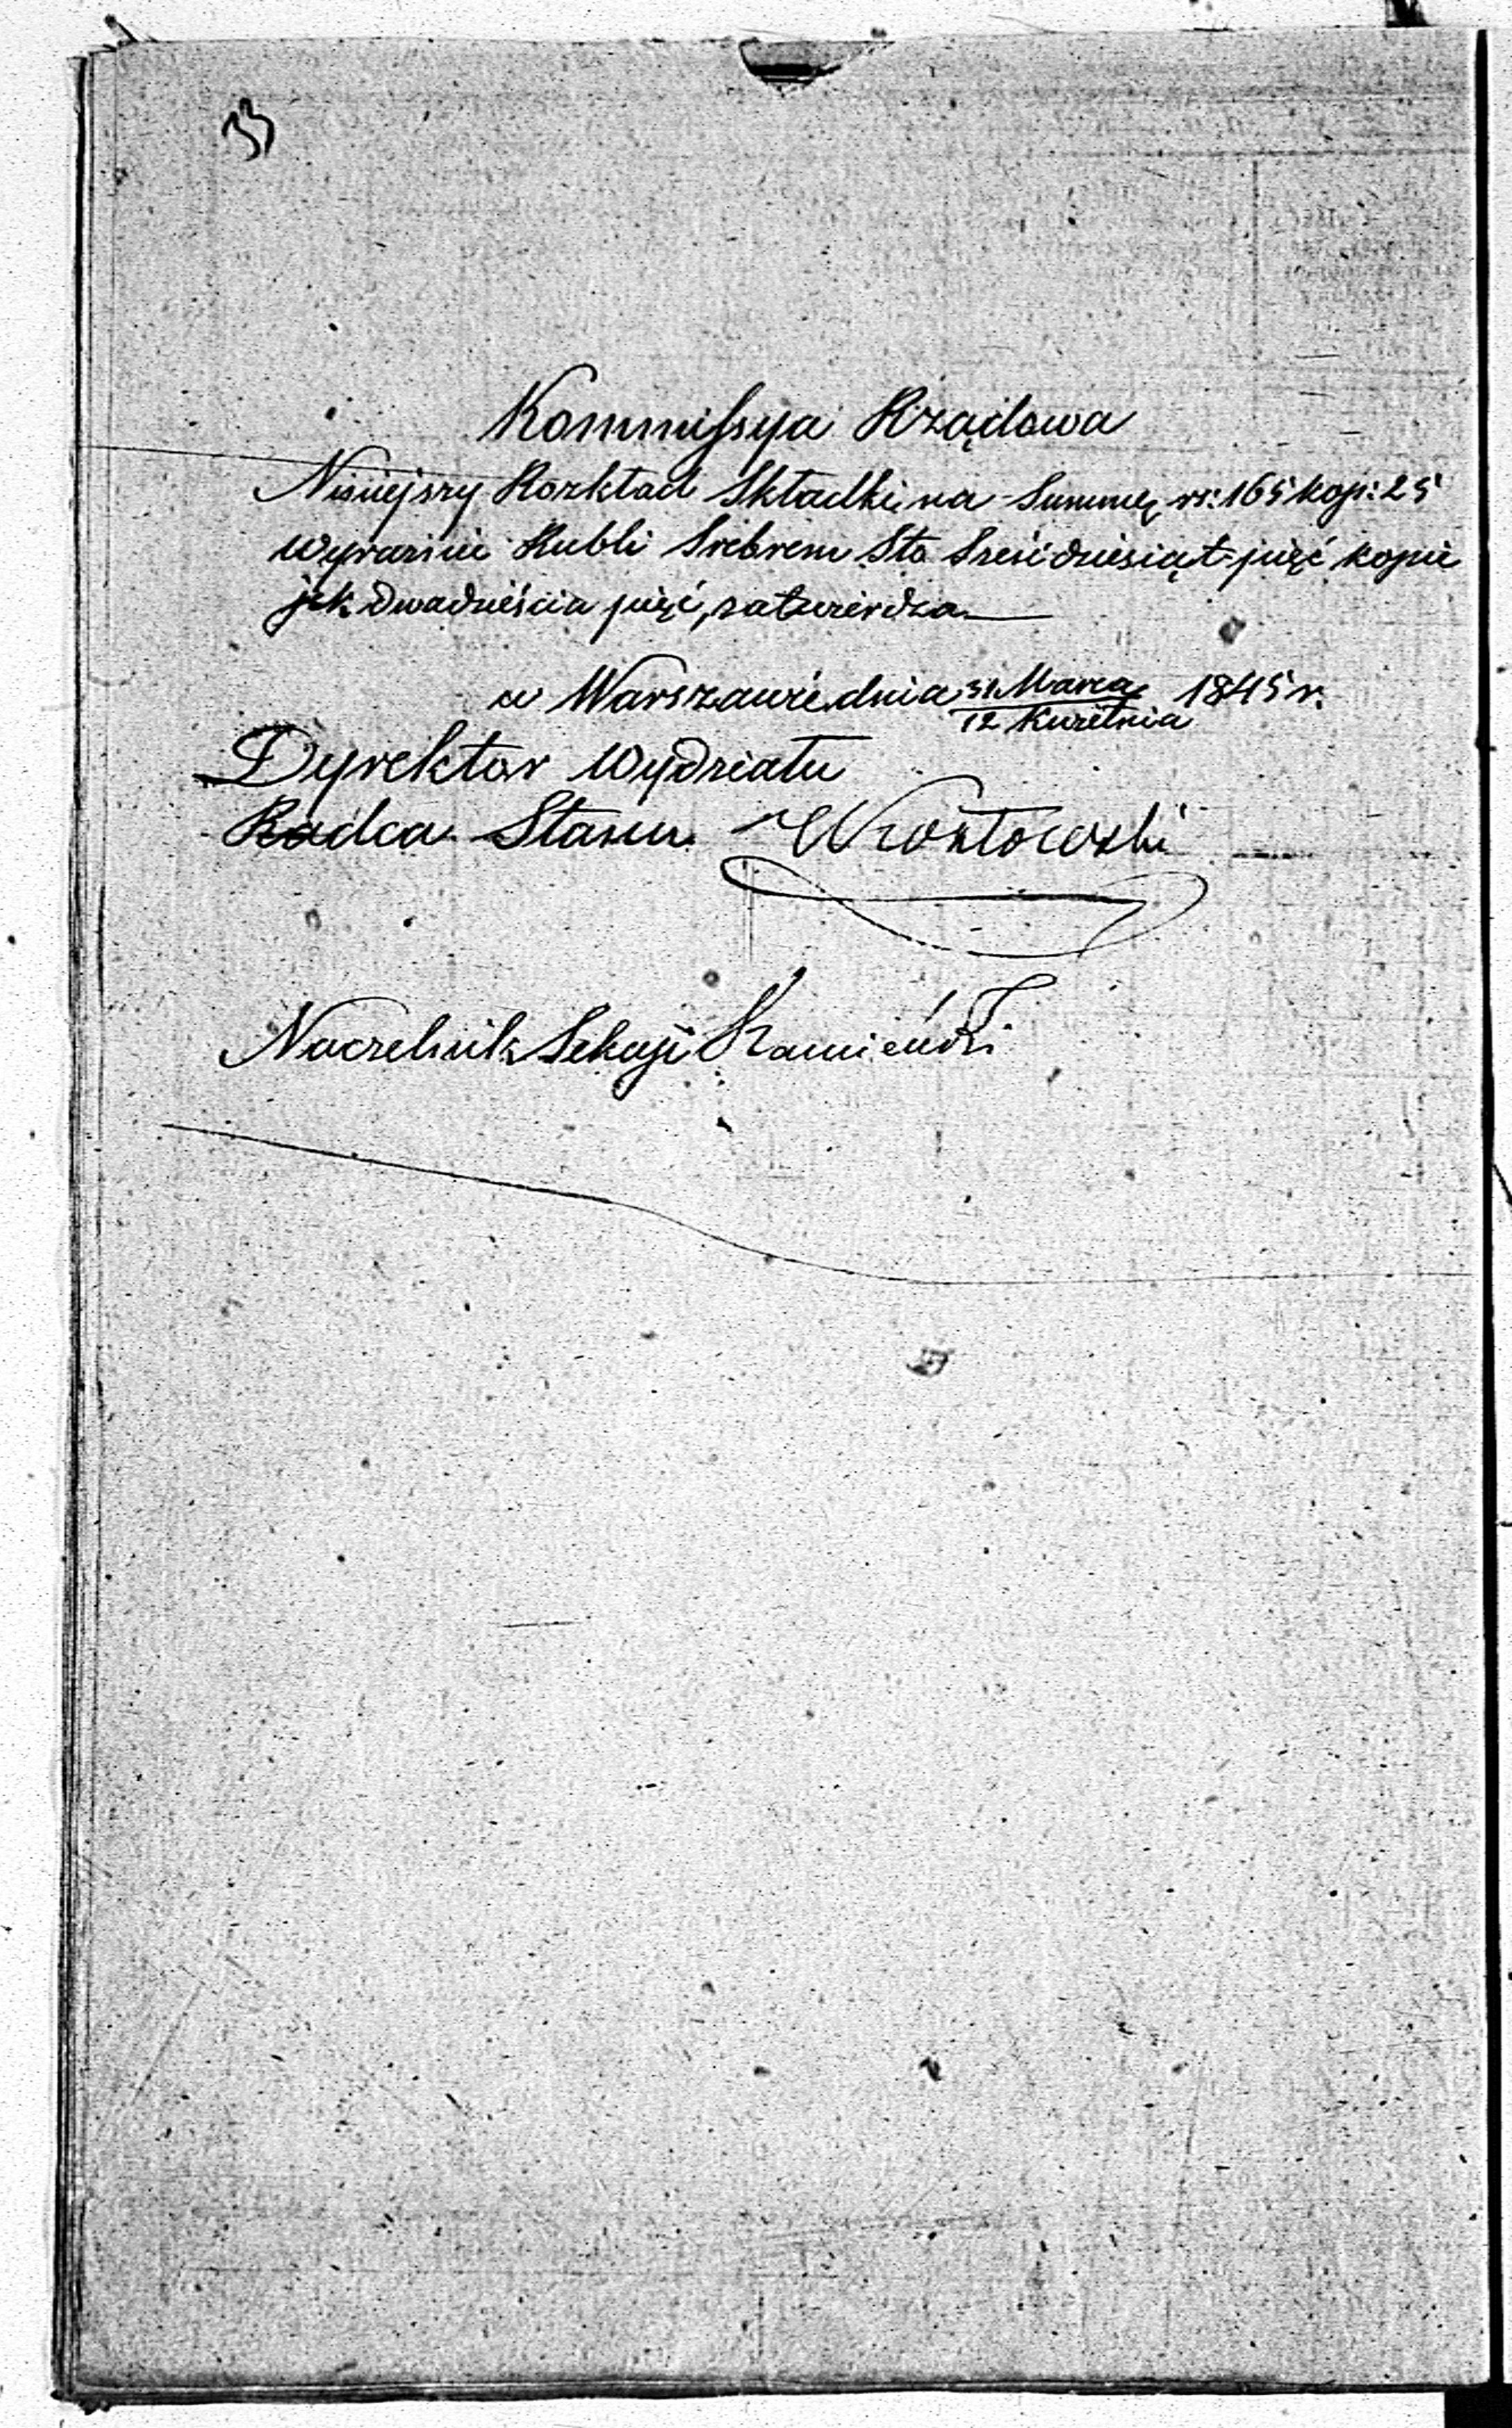 33
Kommissya Rządowa
Niniejszy Rozkład Składki na Summę rs: 165 kop: 25
wyraźnie Rubli Srebrem Sto Sześćdziesiąt pięć kopie
jek dwadzieścia pięć, zatwierdza.
w Warszawie dnia 31 Marca 1845 r.
12 Kwietnia
Dyrektor Wydziału
Radca Stanu
Naczelnik Sekcji Kamieński